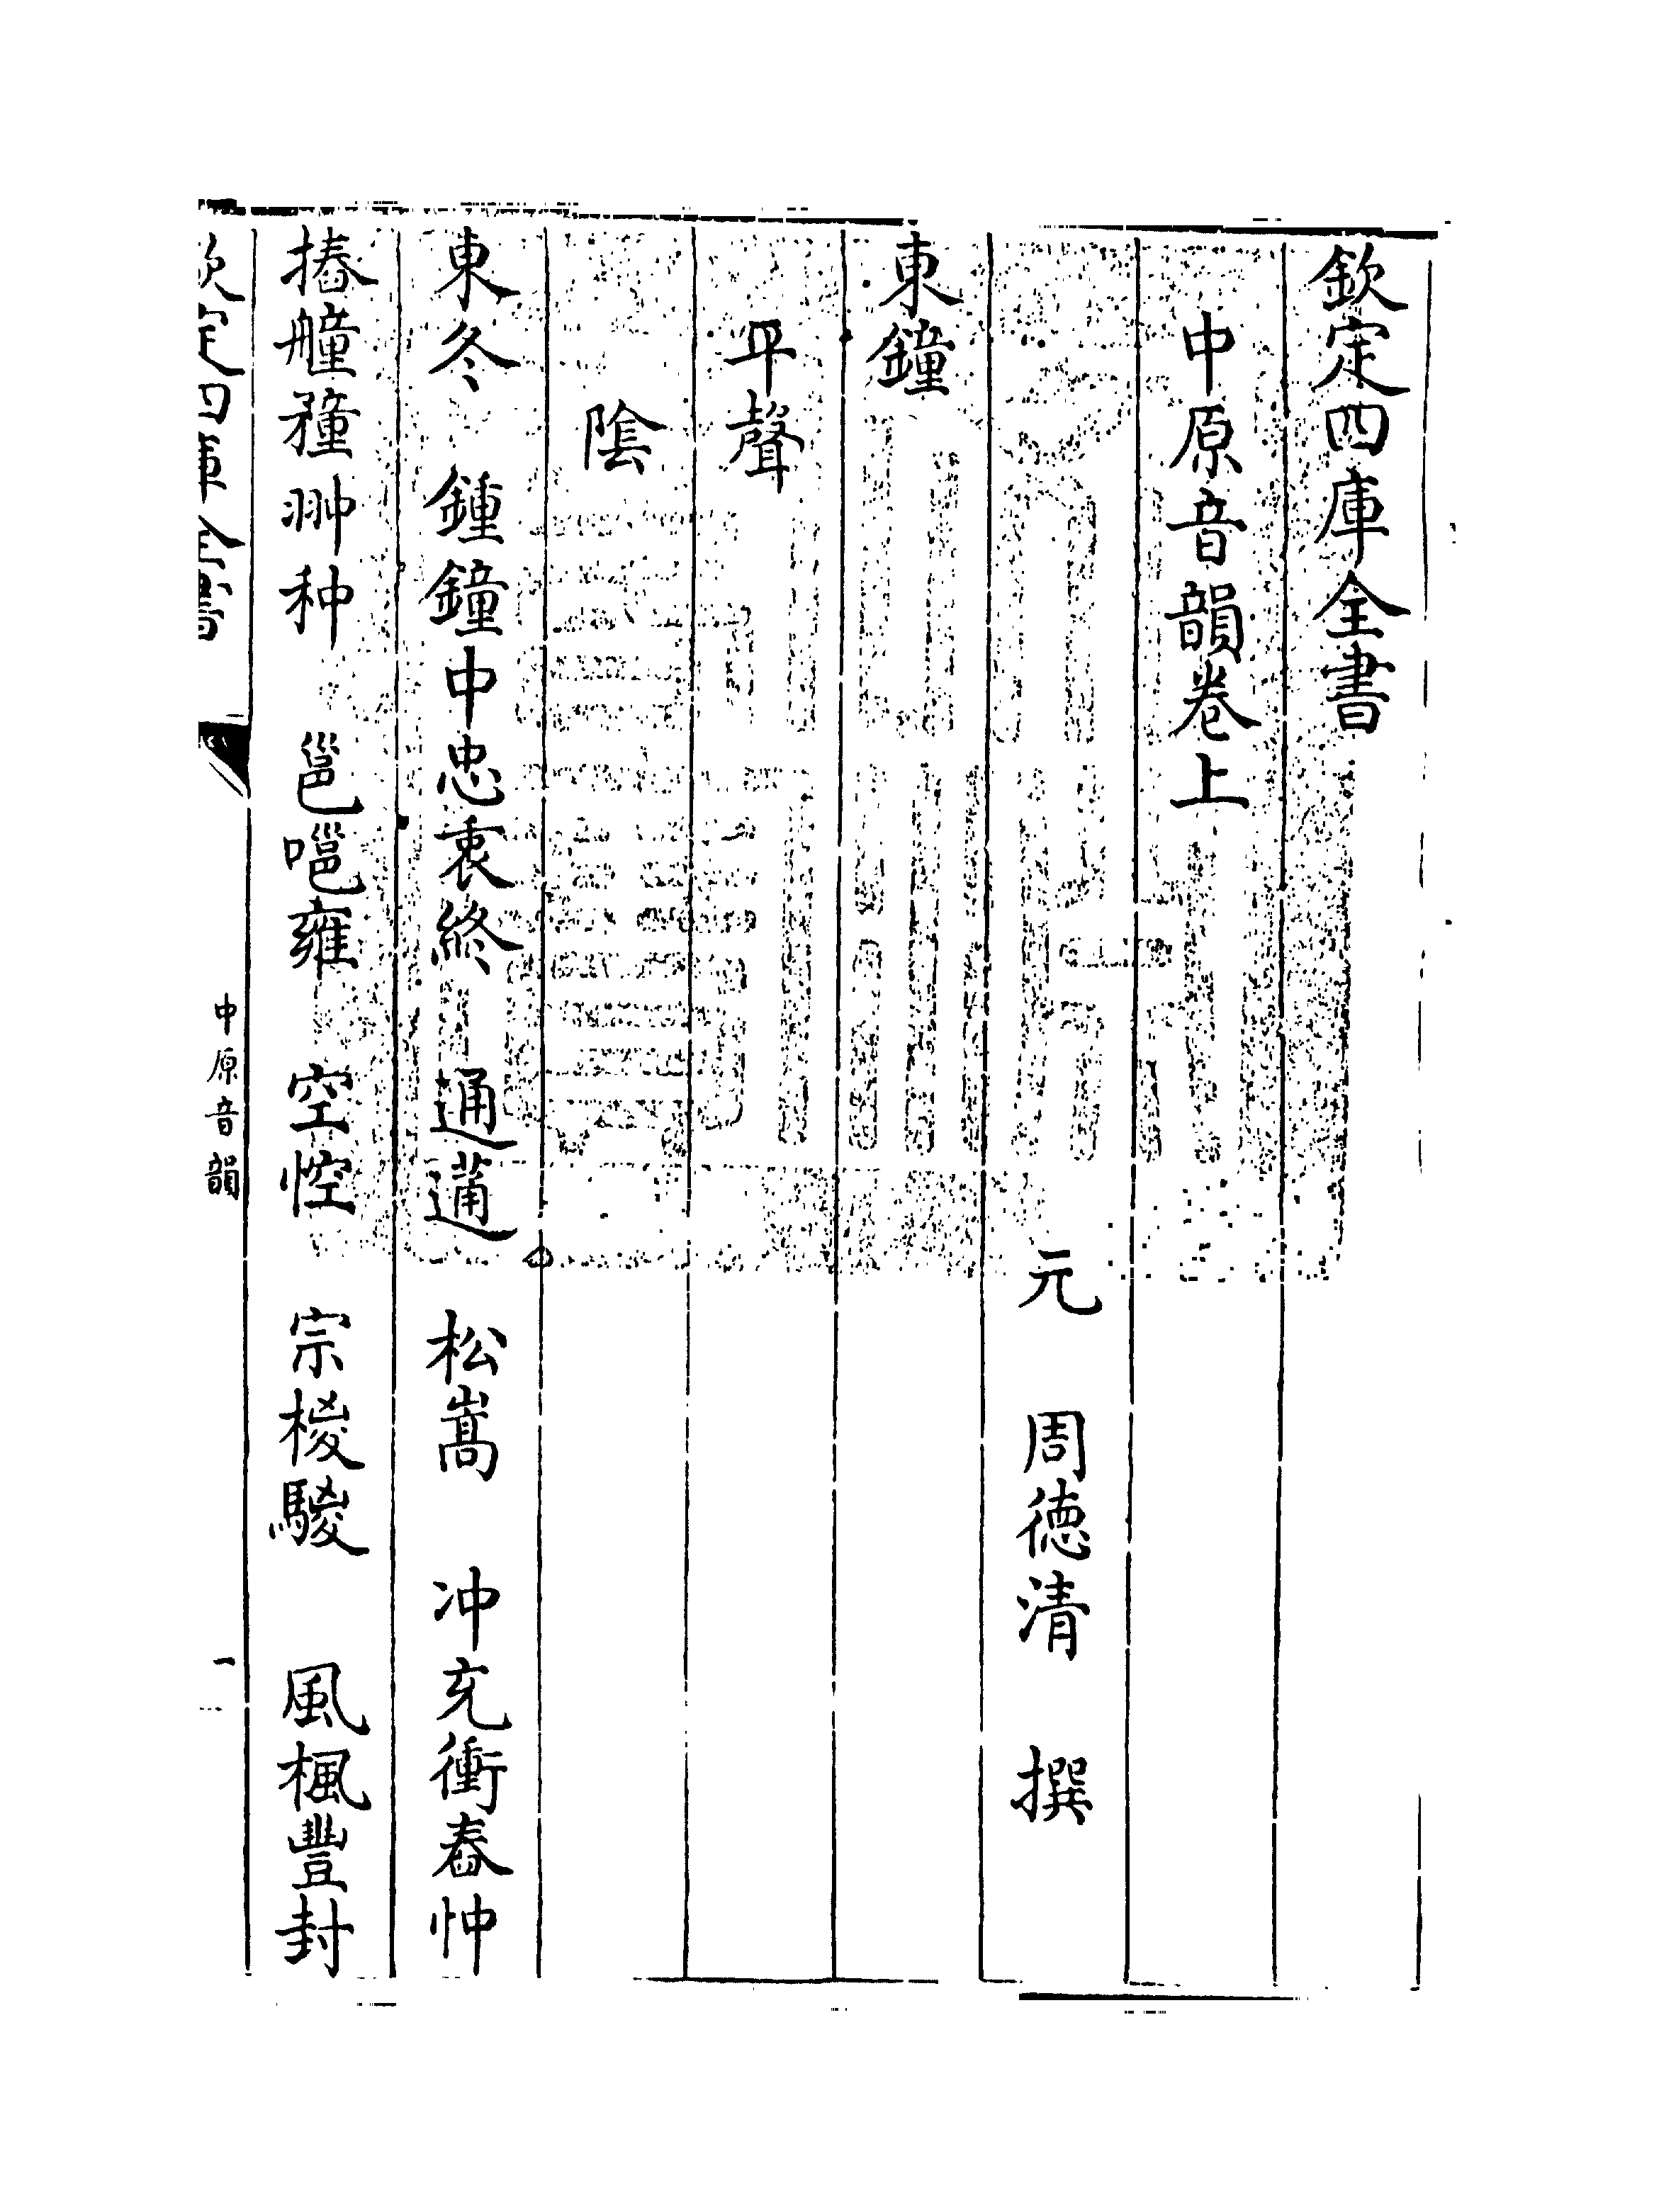 欽定四庫全書
中原音韻卷上
元　周德清　撰
東鐘
平聲
隂
東冬　鍾鐘中忠衷終　通蓪　松嵩　冲充衝舂忡
摏艟穜翀种　邕嗈雍　空悾　宗椶騣　風楓豐封
欽定四庫全書
中原音韻
一